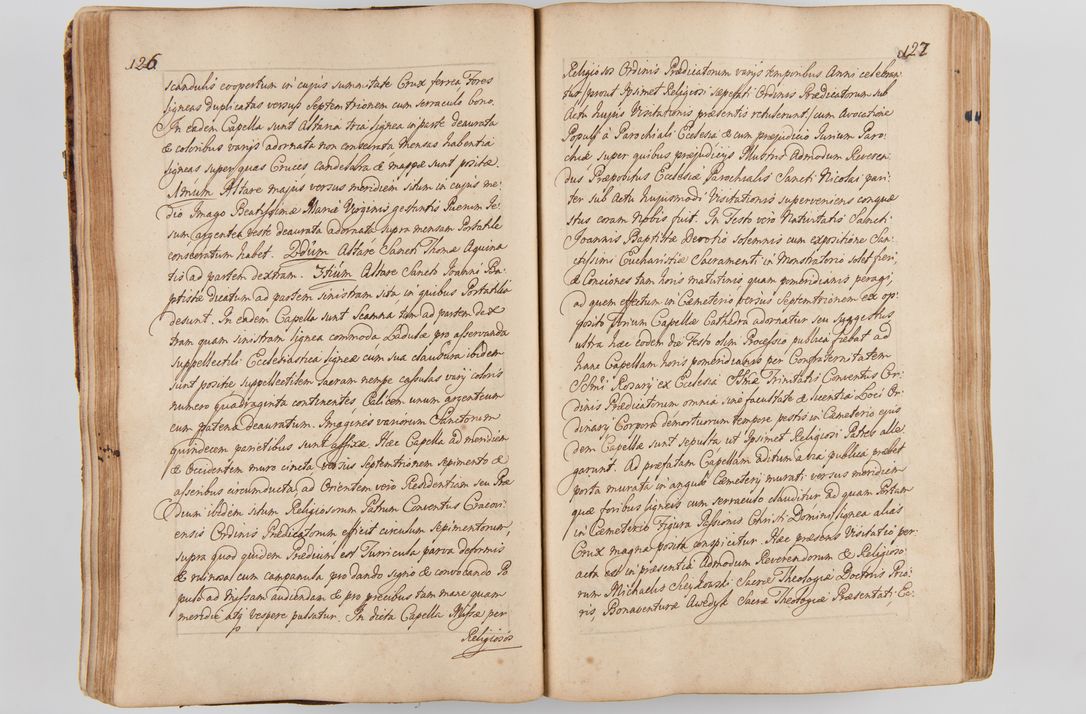 126
scandulis coopertum in cujus summitate Crux ferrea Fores
ligneas duplicatas versus Septentrionem cum serraculo bono.
In eadem Capella sunt Altaria tria lignea in parte deaurata
& coloribus varijs adornata non consecrata Mensas habentia
ligneas super quas Cruces candelabra & mappæ sunt positæ.
1mum Altare majus versus meridiem situm in cujus me-
dio Imago Beatissimæ Mariæ Virginis gestantis Puerum Je-
sum argentea veste deaurata adornata supra mensam Portatile
consecratum habet. 2dum Altare Sancti Thomæ Aquina
tis ad partem dextram. 3tium Altare Sancti Joannis Ba-
ptistæ dicatum ad partem sinistram sita in quibus Portatilia
desunt. In eadem Capella sunt scamna tam ad partem dex
tram quam sinistram lignea commoda Ladula pro asservanda
suppellectili Ecclesiastica ligneæ cum sua clausura ibidem
sunt positæ suppellectilem sacram nempe casulas varij coloris
numero quadraginta continentes, Calicem unum argenteum
cum patena deauratum. Imagines variorum Sanctorum
quindecem parietibus sunt affixæ Hæc Capella ad meridiem
& Occidentem muro cincta versus Septemtrionem sepimento &
asseribus circumducta, ad Orientem vero Residentiam seu Præ
dium ibidem situm Religiosorum Patrum Conventus Cracovi-
ensis Ordinis Prædicatorum efficit circulum sepimentorum,
supra quod quidem Prædium est Turricula parva deformis
& ruinosa cum campanula pro dando signo & convocando Po
pulo ad Missam audiendam & pro precibus tam mane quam
meridie atq vespere pulsatur. In dicta Capella Missæ per
Religiosos
127
Religiosos Ordinis Prædicatorum varijs temporibus Anni celebran
tur /prout Ipsimet Religiosi sæpefati Ordinis Prædicatorum sub
Actu hujus Visitationis præsentis retulerunt/ cum Avocatione
Populi à Parochiali Ecclesia & cum præjudicio Jurium Paro-
chiæ super quibus præjudicijs Illustris Admodum Reveren-
dus Præpositus Ecclesiæ Parochialis Sancti Nicolai pari-
ter sub Actu hujusmodi Visitationis superveniens conquæ
stus coram Nobis fuit. In Festo vero Nativitatis Sancti
Joannis Baptistæ Devotio solemnis cum expositione San-
ctissimi Eucharistiæ Sacramenti in Monstratorio solet fieri,
& Conciones tam horis matutinis quam pomeridianis peragi,
ad quem effectum in Cæmeterio versus Septemtrionem ex op-
posito Forium Capellæ Cathedra adornatur seu suggestus
ultra hæc eodem die Festo olim Processio publica fiebat ad
hanc Capellam horis pomeridianis per Confraternitatem
SSmi Rosarij ex Ecclesia SSmæ Trinitatis Conventus Or-
dinis Prædicatorum omnia sine facultate & licentia Loci Or-
dinarij Corpora demortuorum tempore pestis in Cæmeterio ejus
dem Capellæ sunt sepulta ut Ipsimet Religiosi Patres alle
garunt. Ad præfatam Capellam aditum a via publica præbet
porta murata in angulo Cæmeterij murati versus meridiem
quæ foribus ligneis cum serraculo clauditur ad quam Portam
in Cæmeterio Figura Passionis Christi Domini lignea alias
Crux magna posita conspicitur. Hæc præsens Visitatio per
acta est in præsentia Admodum Reverendorum & Religioso-
rum Michaelis Sacræ Theologiæ Doctoris Prio-
ris, Bonaventuræ Awedyk Sacræ Theologiæ Præsentati,